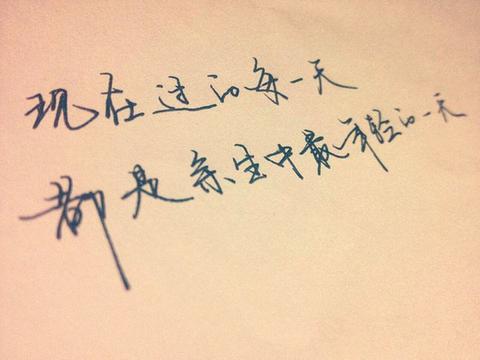 现在过的每一天
都是余生中最年轻的一天